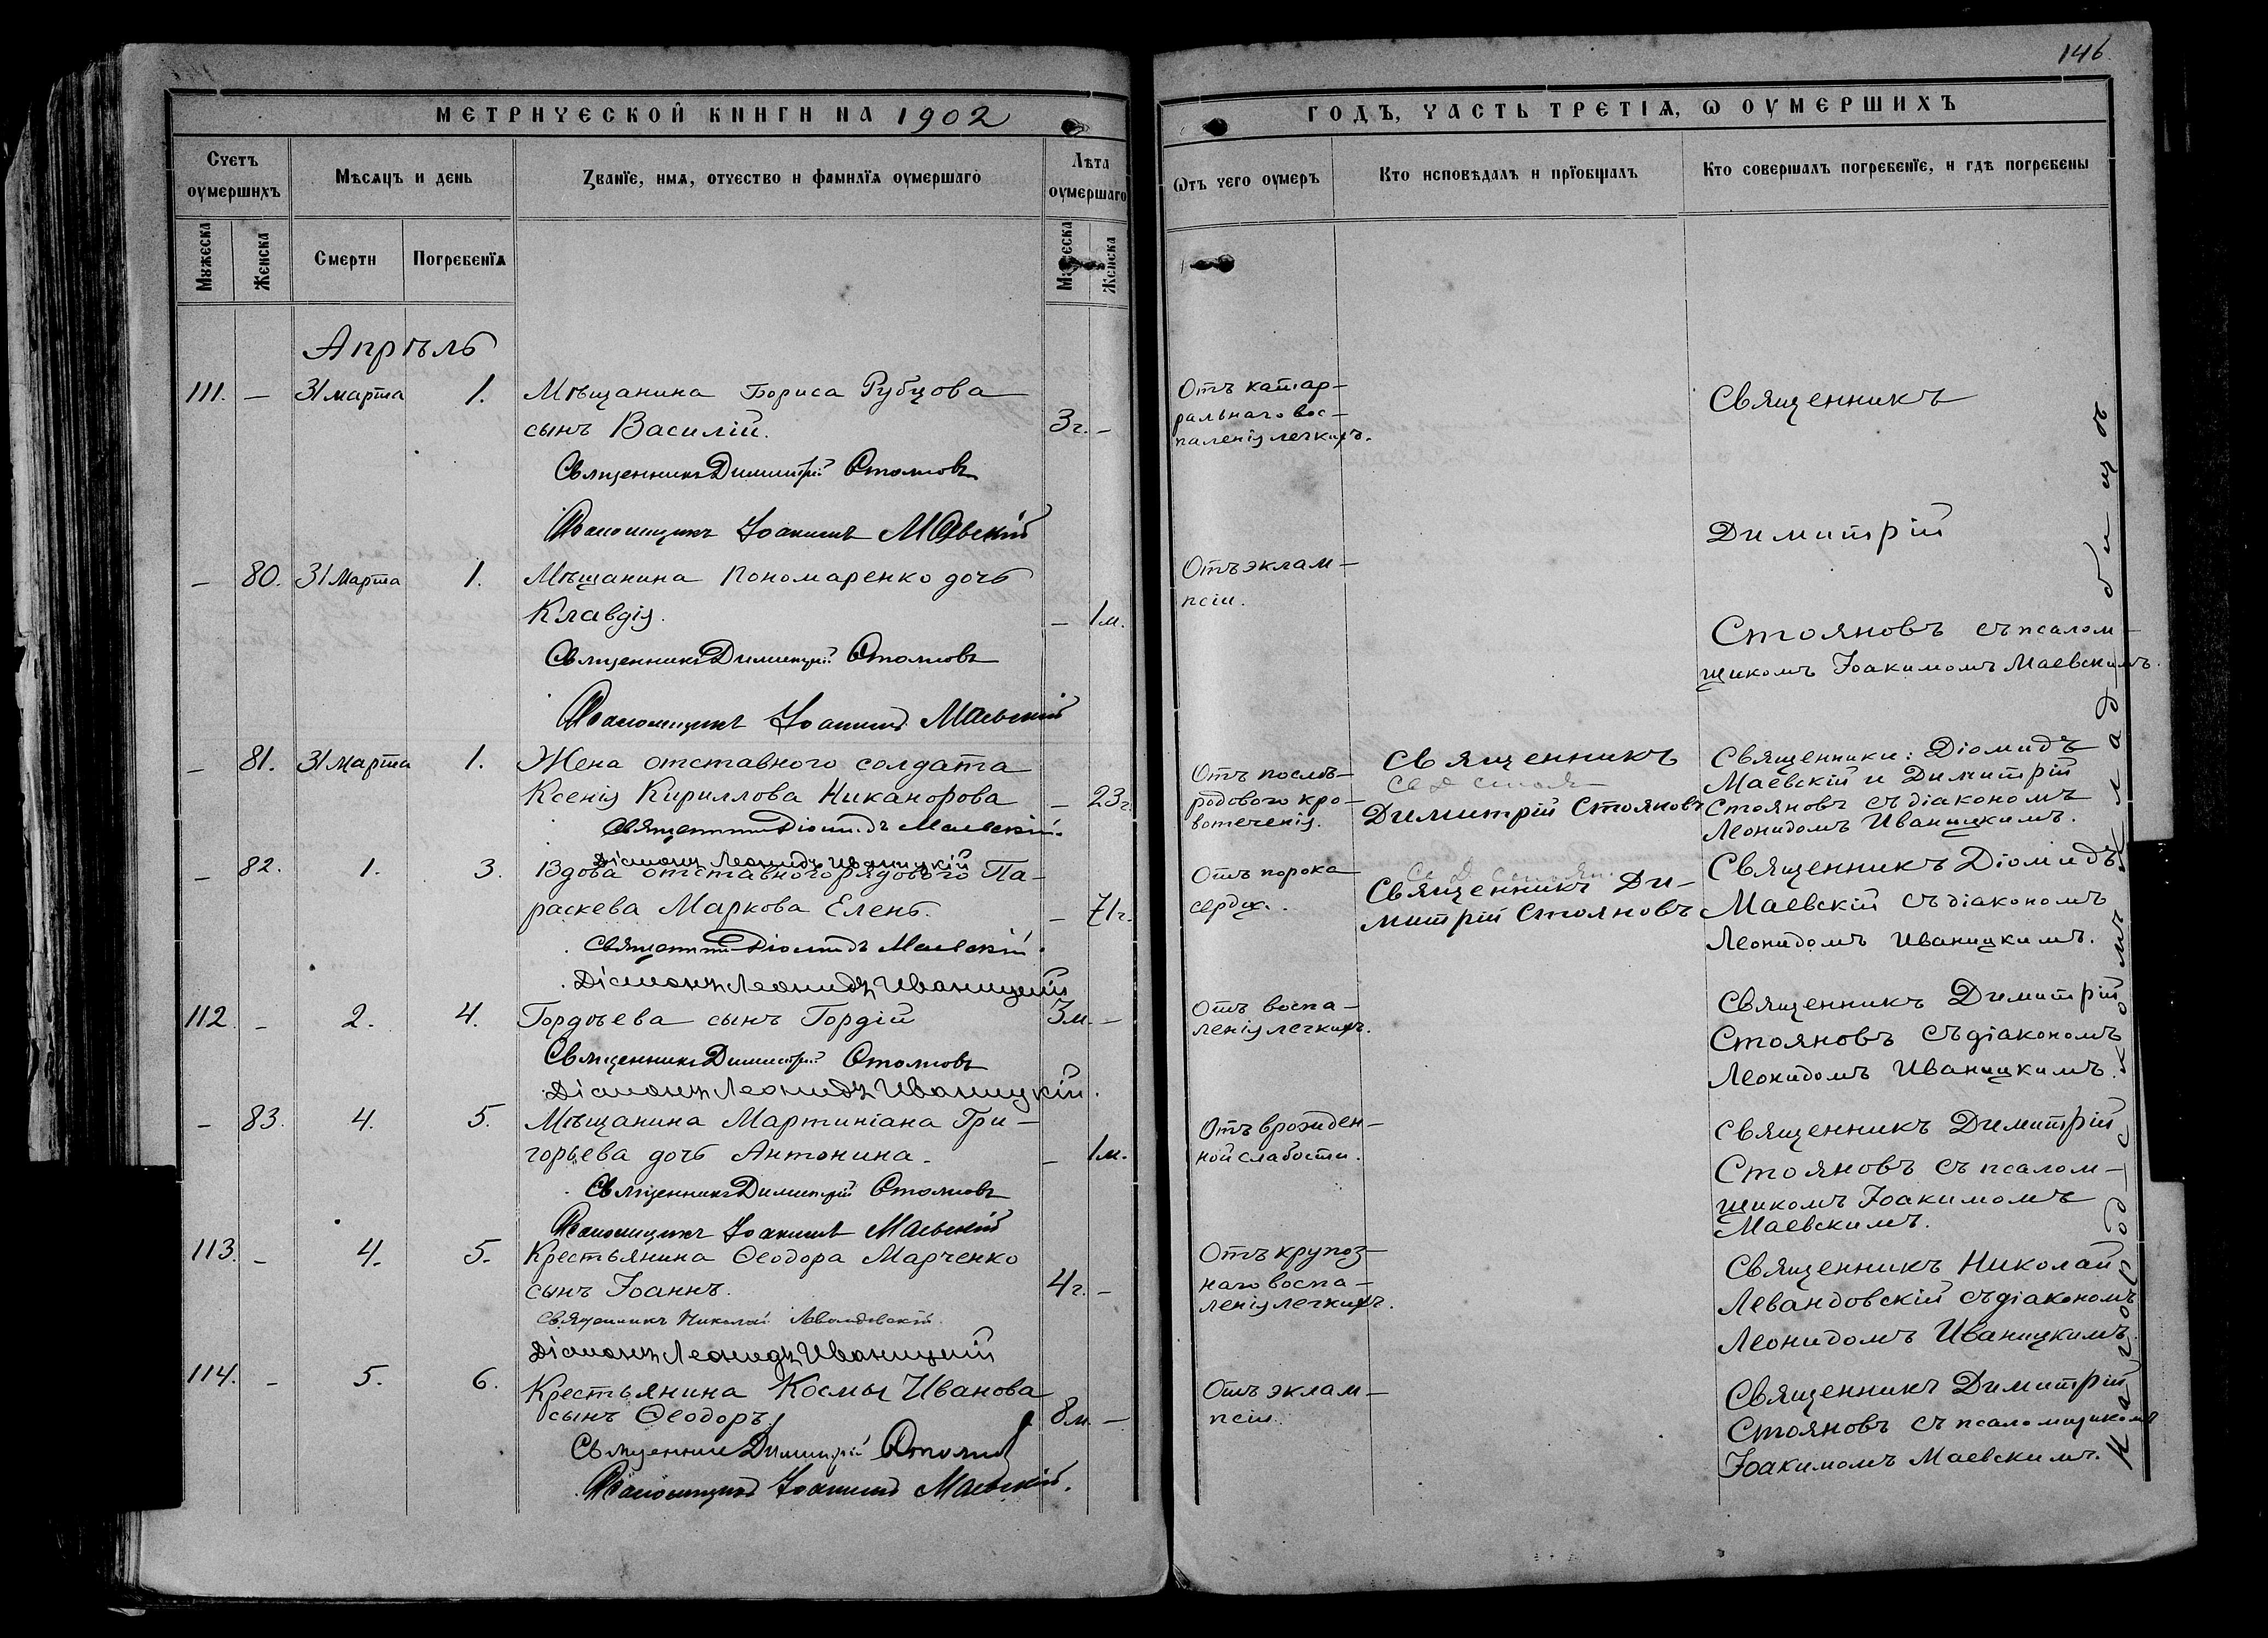 146
МЕТРИЧЕСКОЙ КНИГИ НА 1902
ГОДЪ, ЧАСТЬ ТРЕТІѦ, Ѡ ОУМЕРШИХЪ
Счетъ оумершихъ
Мѣсяцъ и день
Званїе, имя, отчество и фамилїя оумершаго
Лѣта оумершаго
Ѿтъ чего оумеръ
Кто исповѣдалъ и прїобщалъ
Кто совершалъ погребенїе, и гдѣ погребены
Мужеска
Женска
Смерти
Погребенїя
Мужеска
Женска
Апрѣль
111. – 31 марта 1. Мѣщанина Бориса Рубцова
сынъ Василій. 3г. –
Священникъ Димитрій Стояновъ
Псаломщикъ Іоакимъ Маевскій
Отъ катар-
ральнаго вос-
паленія легкихъ.
Священникъ
Димитрій
Стояновъ съ псалом-
щикомъ Іоакимомъ Маевскимъ.
– 80. 31 Марта 1. Мѣщанина Пономаренко дочь
Клавдія. – 1м.
Священникъ Димитрій Стояновъ
Псаломщикъ Іоакимъ Маевскій
Отъ эклам-
псіи.
– 81. 31 Марта 1. Жена отставного солдата
Ксенія Кириллова Никанорова – 23г.
Священникъ Діомидъ Маевскій.
Діаконъ Леонидъ Иваницкій
Отъ послѣ-
родового кро-
вотеченія.
Священникъ
Димитрій Стояновъ
Священники: Діомидъ
Маевскій и Димитрій
Стояновъ съ діакономъ
Леонидомъ Иваницкимъ.
– 82. 1. 3. Вдова отставного рядового Па-
раскева Маркова Елень. – 71г.
Священникъ Діомидъ Маевскій.
Діаконъ Леонидъ Иваницкій
Отъ порока
сердца.
Священникъ Ди-
митрій Стояновъ
Священникъ Діомидъ
Маевскій съ діакономъ
Леонидомъ Иваницкимъ.
112. – 2. 4. Гордѣева сынъ Гордій 3м. –
Священникъ Димитрій Стояновъ
Діаконъ Леонидъ Иваницкій.
Отъ воспа-
ленія легкихъ.
Священникъ Димитрій
Стояновъ съ діакономъ
Леонидомъ Иваницкимъ.
– 83. 4. 5. Мѣщанина Мартиніана Гри-
горьева дочь Антонина. – 1м.
Священникъ Димитрій Стояновъ
Псаломщикъ Іоакимъ Маевскій
Отъ врожден-
ной слабости.
Священникъ Димитрій
Стояновъ съ псалом-
щикомъ Іоакимомъ
Маевскимъ.
113. – 4. 5. Крестьянина Ѳеодора Марченко
сынъ Іоаннъ. 4г. –
Священникъ Николай Левандовскій
Діаконъ Леонидъ Иваницкій
Отъ крупоз-
наго воспа-
ленія легкихъ.
Священникъ Николай
Левандовскій съ діакономъ
Леонидомъ Иваницкимъ.
114. – 5. 6. Крестьянина Космы Иванова
сынъ Ѳеодоръ. 8м. –
Священникъ Димитрій Стояновъ
Псаломщикъ Іоакимъ Маевскій.
Отъ эклам-
псіи.
Священникъ Димитрій
Стояновъ съ псаломщикомъ
Іоакимомъ Маевскимъ.
На городскомъ кладбищѣ